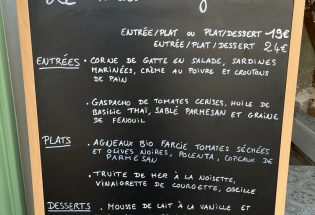 ENTRÉE/PLAT OU PLAT/DESSERT 19€
ENTRÉE/PLAT/DESSERT 24€
ENTRÉES • CORNE DE GATTE EN SALADE, SARDINES
MARINÉES, CRÈME AU POIVRE ET CROUTONS
DE PAIN
• GASPACHO DE TOMATES CERISES, HUILE DE
BASILIC THAÏ, SABLÉ PARMESAN ET GRAINE
DE FENOUIL
PLATS • AGNEAUX BIO FARCIE TOMATES SÉCHÉES
ET OLIVES NOIRES, POLENTA, COPEAUX DE
PARMESAN
• TRUITE DE MER À LA NOISETTE,
VINAIGRETTE DE COURGETTE, OSEILLE
DESSERTS • MOUSSE DE LAIT À LA VANILLE ET